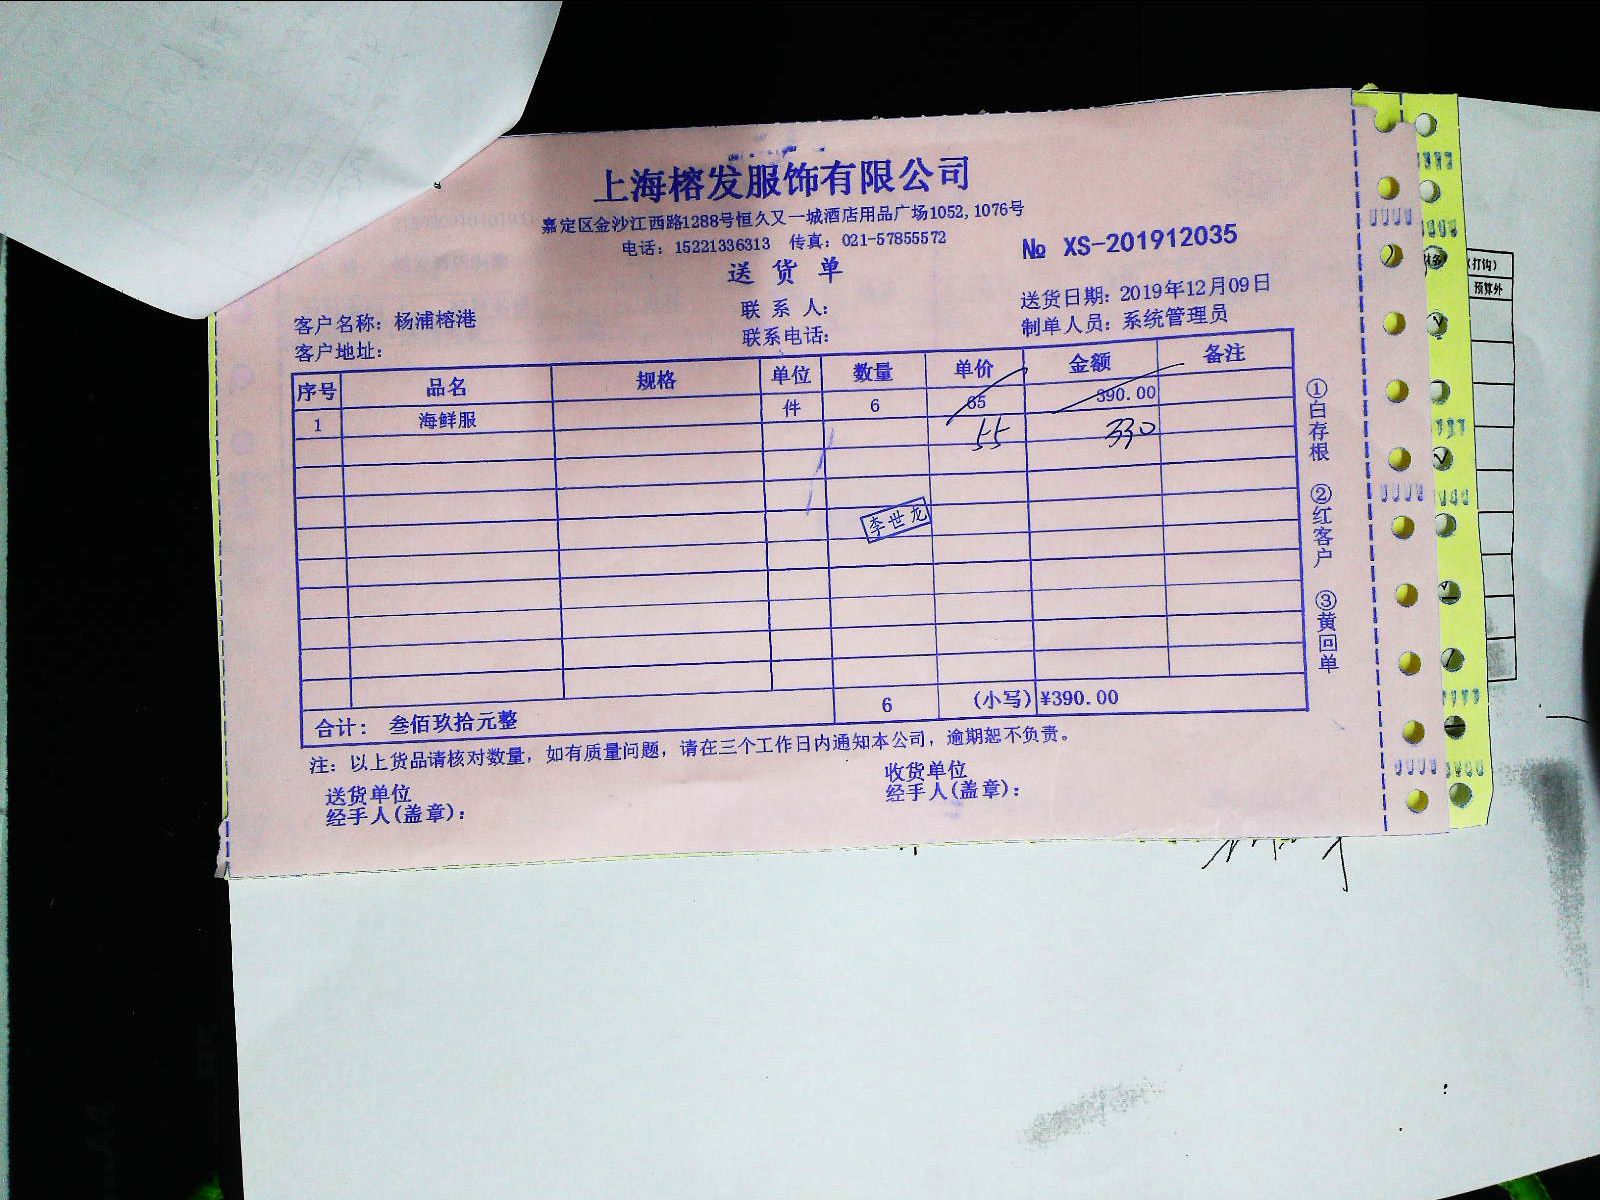 上海榕发服饰有限公司
嘉定区金沙江西路1288号恒久又一城酒店用品广场1052,1076号
电话：15221336313 传真：021-57855572
№ XS-201912035
送货单
客户名称：杨浦榕港 联系人： 送货日期：2019年12月09日
客户地址： 联系电话： 制单人员：系统管理员
序号 品名 规格 单位 数量 单价 金额 备注
1 海鲜服 件 6 65 390.00
55 330
李世龙
合计： 叁佰玖拾元整 6 (小写) ¥390.00
注：以上货品请核对数量，如有质量问题，请在三个工作日内通知本公司，逾期恕不负责。
送货单位 收货单位
经手人(盖章)： 经手人(盖章)：
①白存根 ②红客户 ③黄回单
(打钩)
预算外